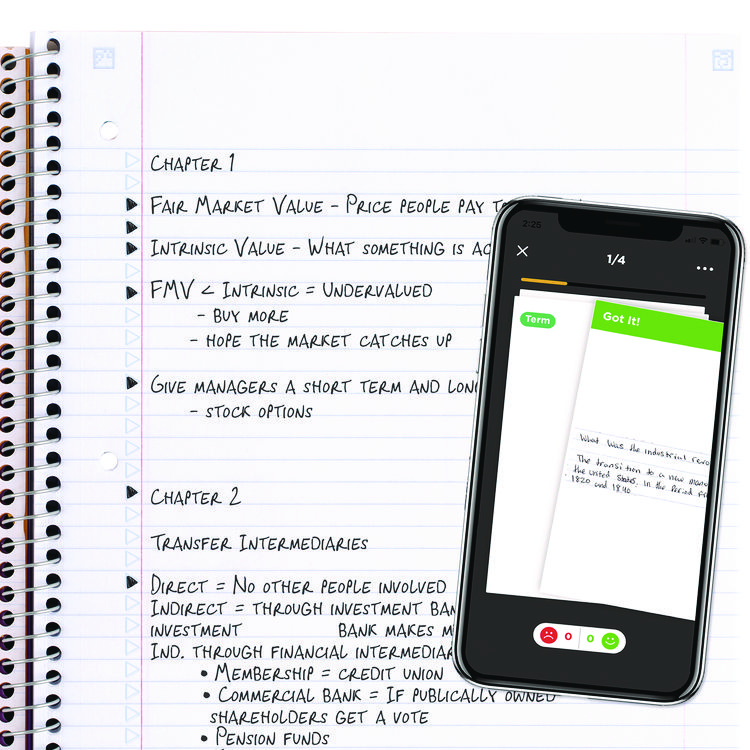 CHAPTER 1
FAIR MARKET VALUE - PRICE PEOPLE PAY
INTRINSIC VALUE - WHAT SOMETHING IS
FMV < INTRINSIC = UNDERVALUED
- BUY MORE
- HOPE THE MARKET CATCHES UP
GIVE MANAGERS A SHORT TERM AND
- STOCK OPTIONS
CHAPTER 2
TRANSFER INTERMEDIARIES
DIRECT = NO OTHER PEOPLE INVOLVED
INDIRECT = THROUGH INVESTMENT
INVESTMENT BANK MAKES
IND. THROUGH FINANCIAL
• MEMBERSHIP = CREDIT UNION
• COMMERCIAL BANK = IF PUBLICALLY OWNED
SHAREHOLDERS GET A VOTE
• PENSION FUNDS
2:25
1/4
Term
Got it!
What was the industrial
The transition to a new
the United States. In the Period
1820 and 1840
0 0